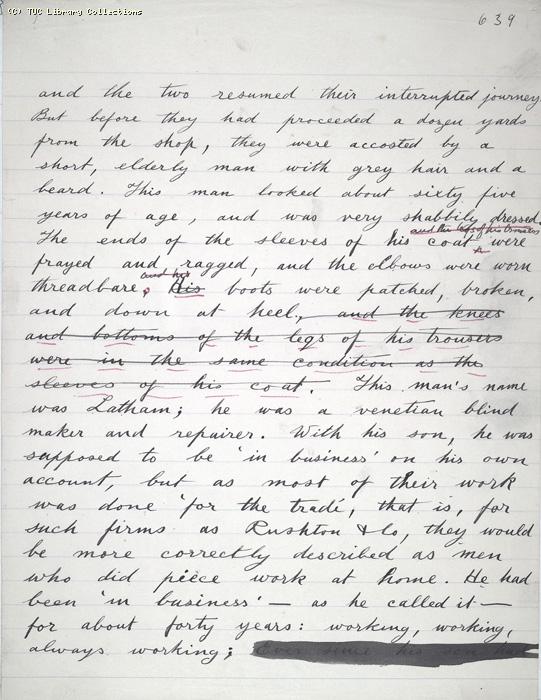 (C) TUC Library Collections
639
and the two resumed their interrupted journey.
But before they had proceeded a dozen yards
from the shop, they were accosted by a
short, elderly man with grey hair and a
beard. This man looked about sixty five
years of age, and was very shabbily dressed.
and the legs of his trousers
The ends of the sleeves of his coat were
frayed and ragged, and the elbows were worn
and his
threadbare, His boots were patched, broken,
and down at heel, and the knees
and bottoms of the legs of his trousers
were in the same condition as the
sleeves of his coat. This man's name
was Latham; he was a venetian blind
maker and repairer. With his son, he was
supposed to be 'in business' on his own
account, but as most of their work
was done 'for the trade', that is, for
such firms as Rushton & Co, they would
be more correctly described as men
who did piece work at home. He had
been 'in business' — as he called it —
for about forty years: working, working,
always working; Ever since his son had